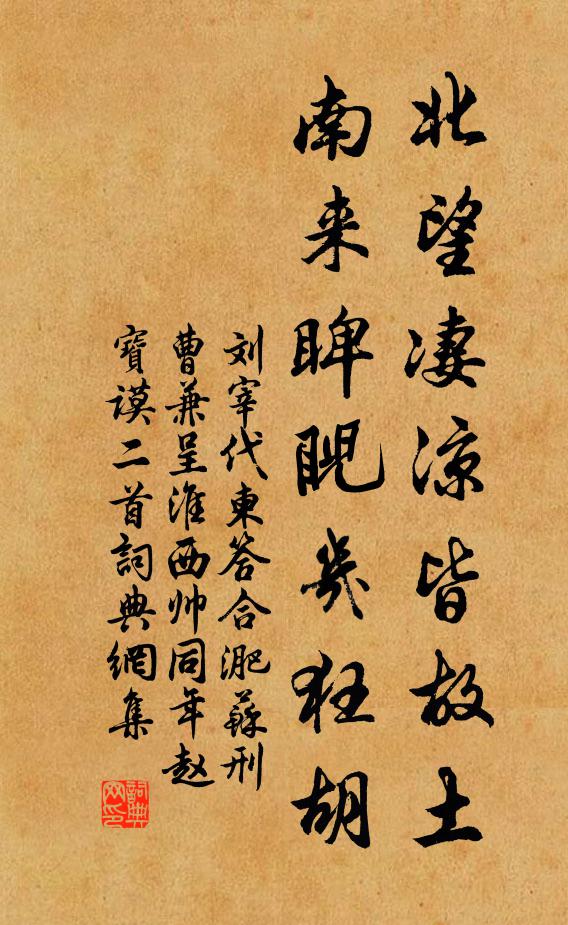 北望凄凉皆故土
南来睥睨几狂胡
刘宰代東答合淝蘇刑
曹兼呈淮西帅同年赵
寶謨二首詞典網集
詞典
网印